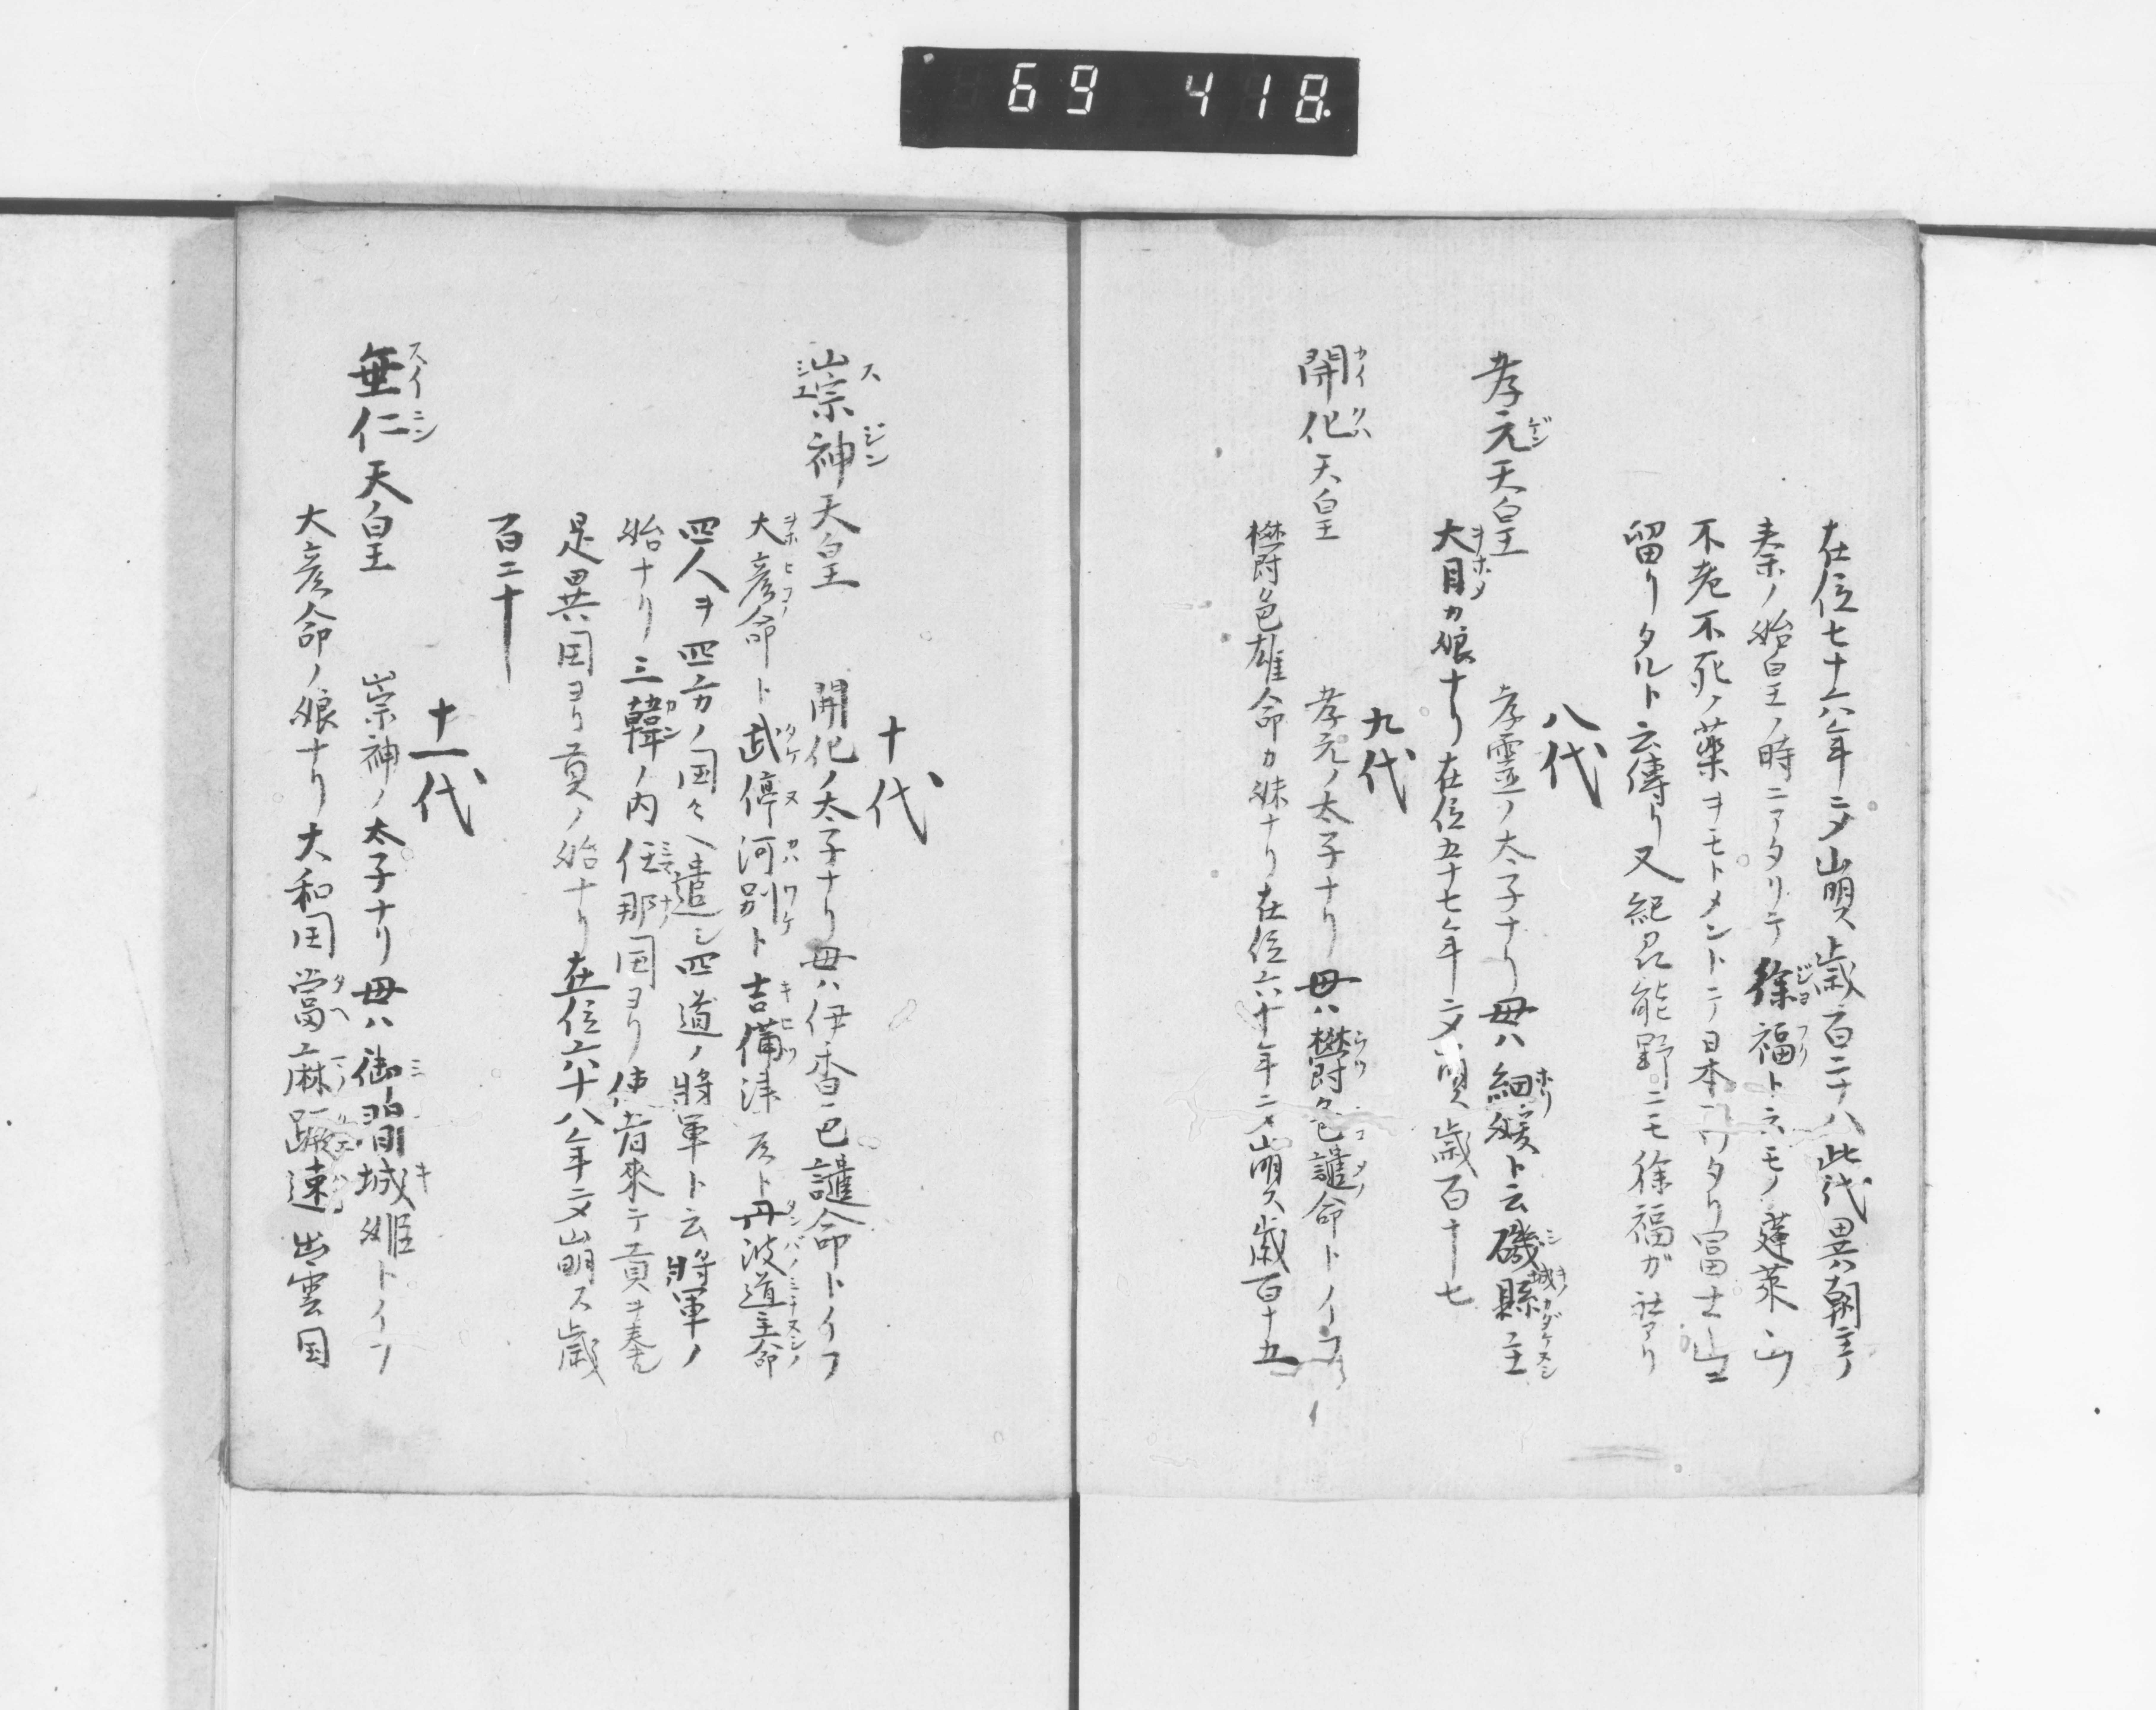 69 418.
在位七十六年ニメ崩ス歳百二十八此代異朝ニテ
秦ノ始皇ノ時ニアタリテ徐福ト云モノ蓬萊ニ
不老不死ノ薬ヲモトメントテ日本ニワタリ富士山ニ
留リタルト云傳リ又紀州熊野ニモ徐福ガ社アリ
八代
孝元天皇 孝霊ノ太子ナリ母ハ細媛ト云磯城縣主
大目カ娘ナリ在位五十七年ニメ崩ス歳百十七
九代
開化天皇 孝元ノ太子ナリ母ハ欝色謎命トイフ
欝色雄命カ妹ナリ在位六十年ニメ崩ス歳百十五
十代
崇神天皇 開化ノ太子ナリ母ハ伊香色謎命トイフ
大彦命ト武停河別ト吉備津彦ト丹波道主命
四人ヲ四方ノ国々ヘ遣シ四道ノ將軍ト云將軍ノ
始ナリ三韓ノ内任那国ヨリ使者來テ貢ヲ奉ル
是異国ヨリ貢ノ始ナリ在位六十八年ニメ崩ス歳
百二十
十一代
垂仁天皇 崇神ノ太子ナリ母ハ御間城姫トイフ
大彦命ノ娘ナリ大和国當麻蹶速出雲国